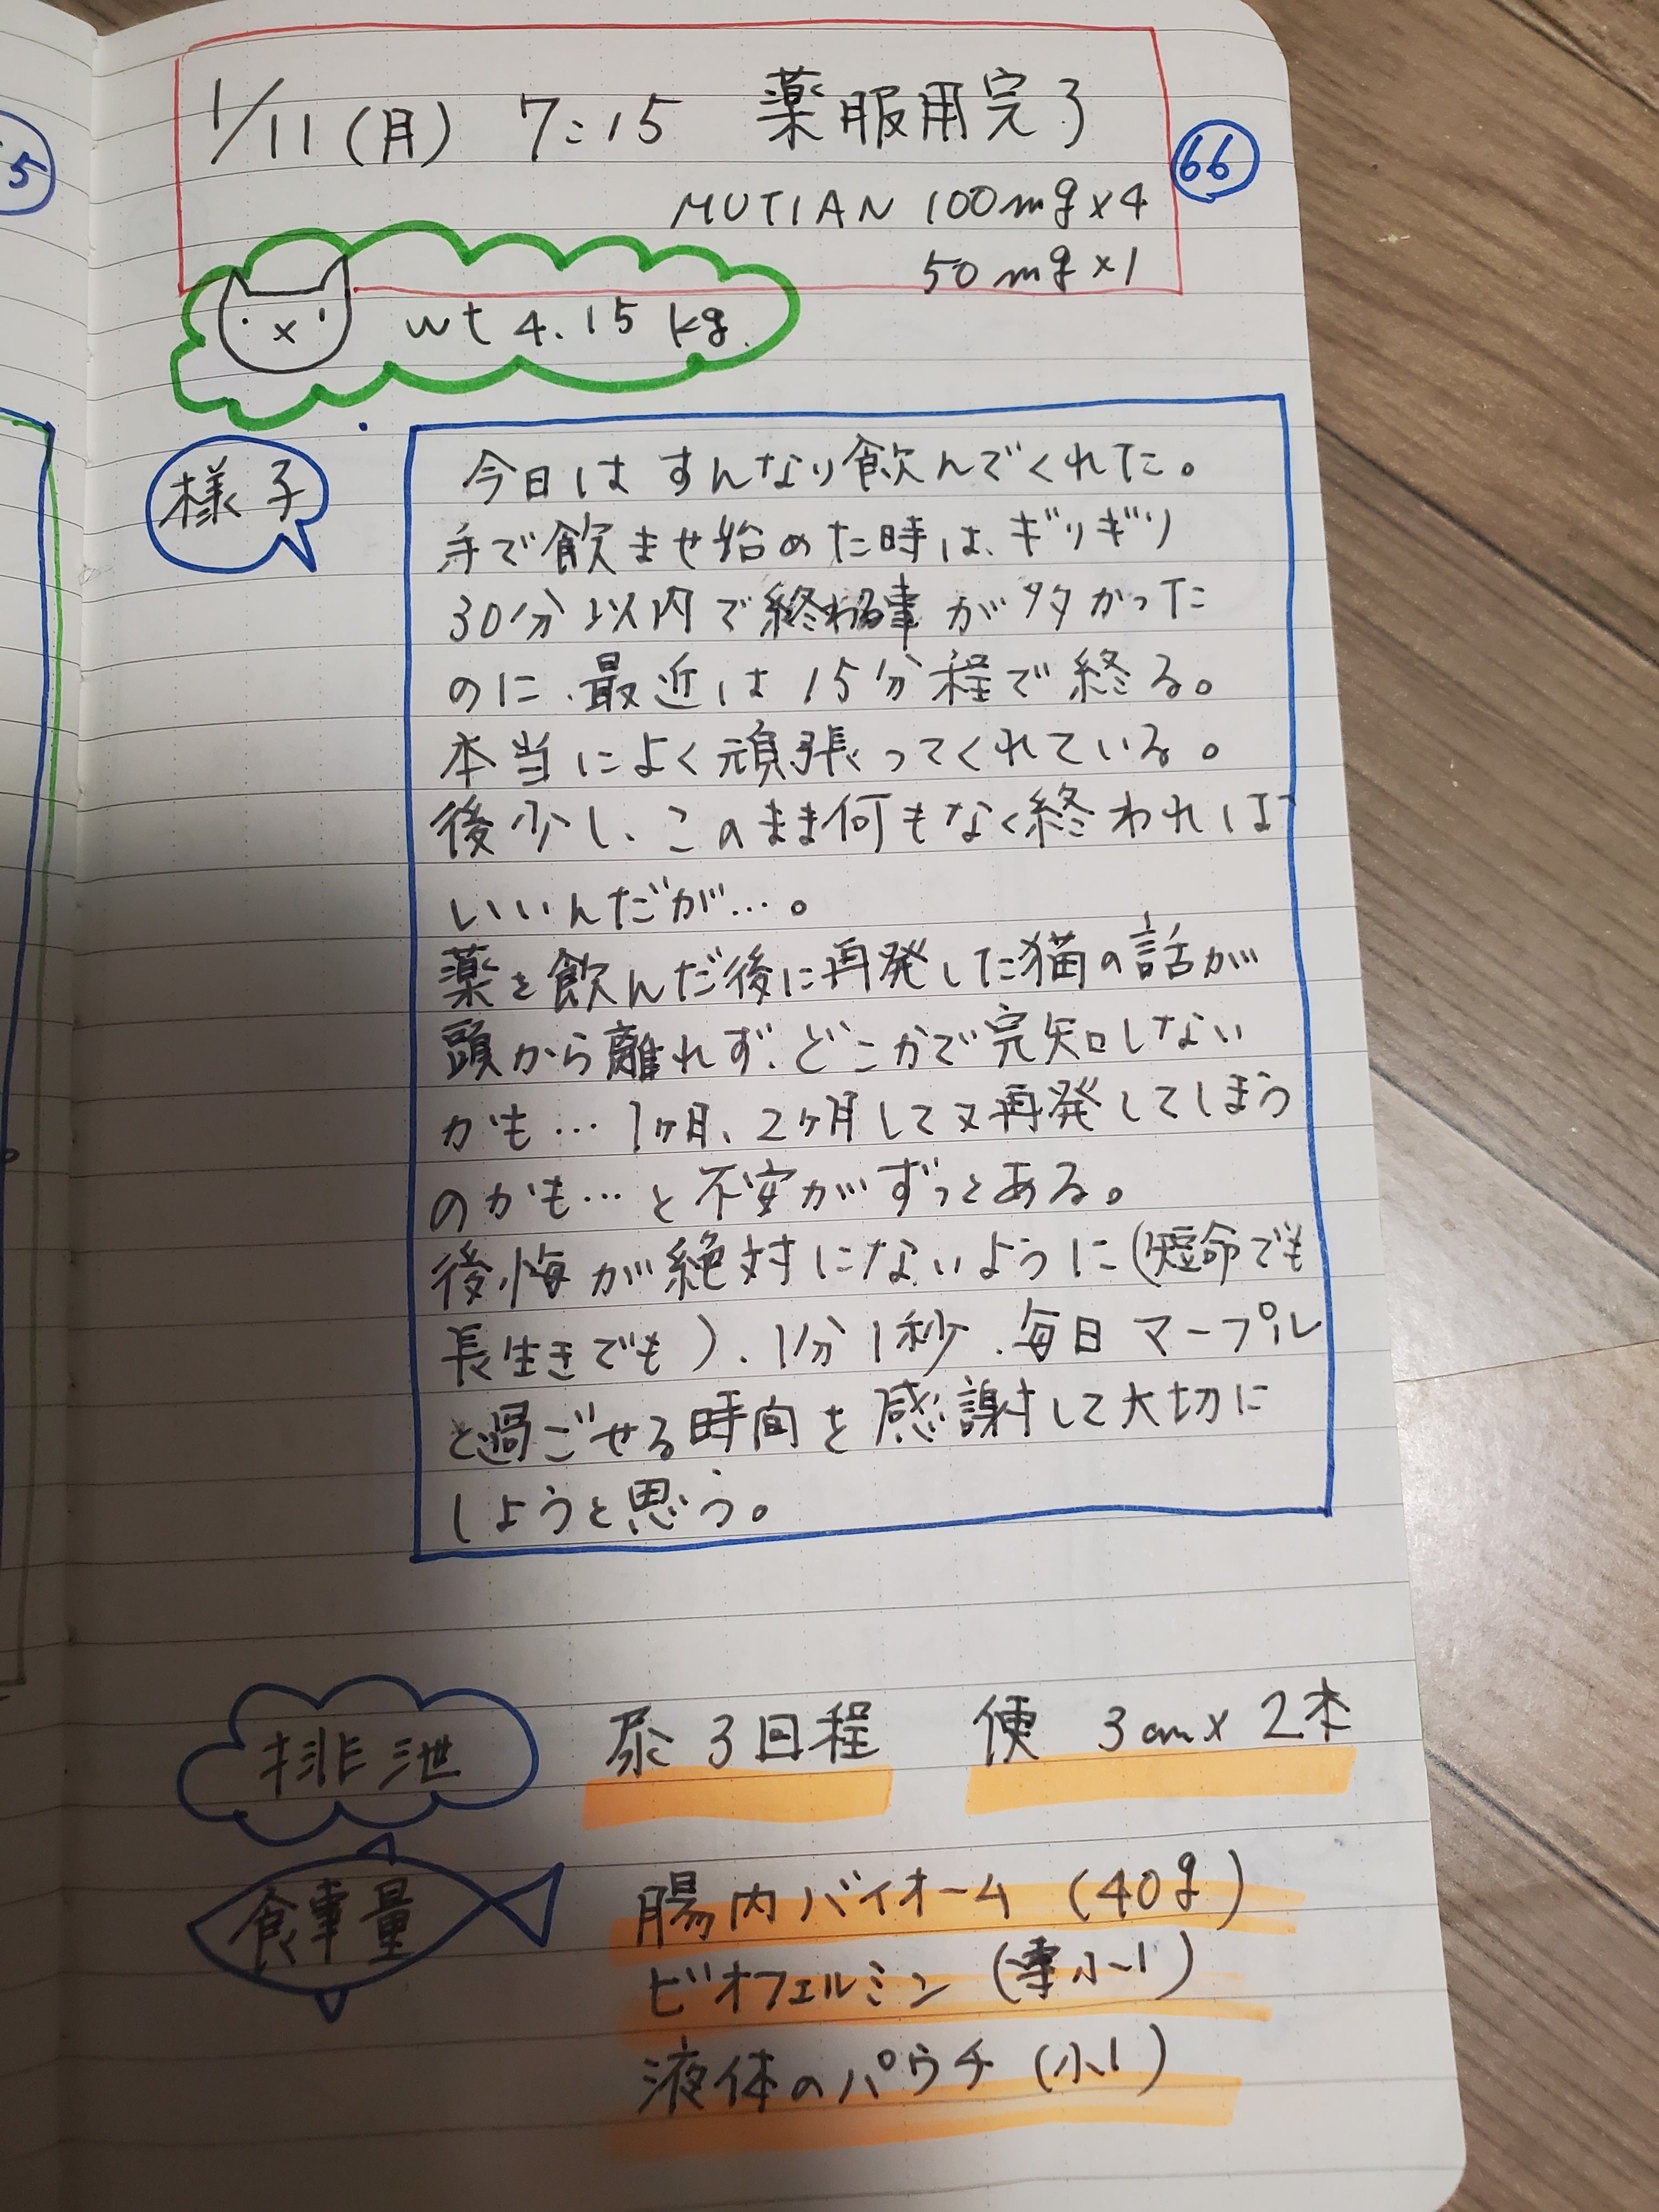 5
1/11(月) 7:15 薬服用完了
66
MUTIAN 100mg×4
50mg×1
wt 4.15kg.
様子
今日はすんなり飲んでくれた。
手で飲ませ始めた時は、ギリギリ
30分以内で終わる事が多かった
のに、最近は15分程で終る。
本当によく頑張ってくれている。
後少し、このまま何もなく終われば
いいんだが…。
薬を飲んだ後に再発した猫の話が
頭から離れず、どこかで完知しない
かも…1ヶ月、2ヶ月して又再発してしまう
のかも…と不安がずっとある。
後悔が絶対にないように(短命でも
長生きでも)、1分1秒、毎日マープル
と過ごせる時間を感謝して大切に
しようと思う。
排泄
尿3回程 便 3cm×2本
食事量
腸内バイオーム(40g)
ビオフェルミン(小1)
液体のパウチ(小1)